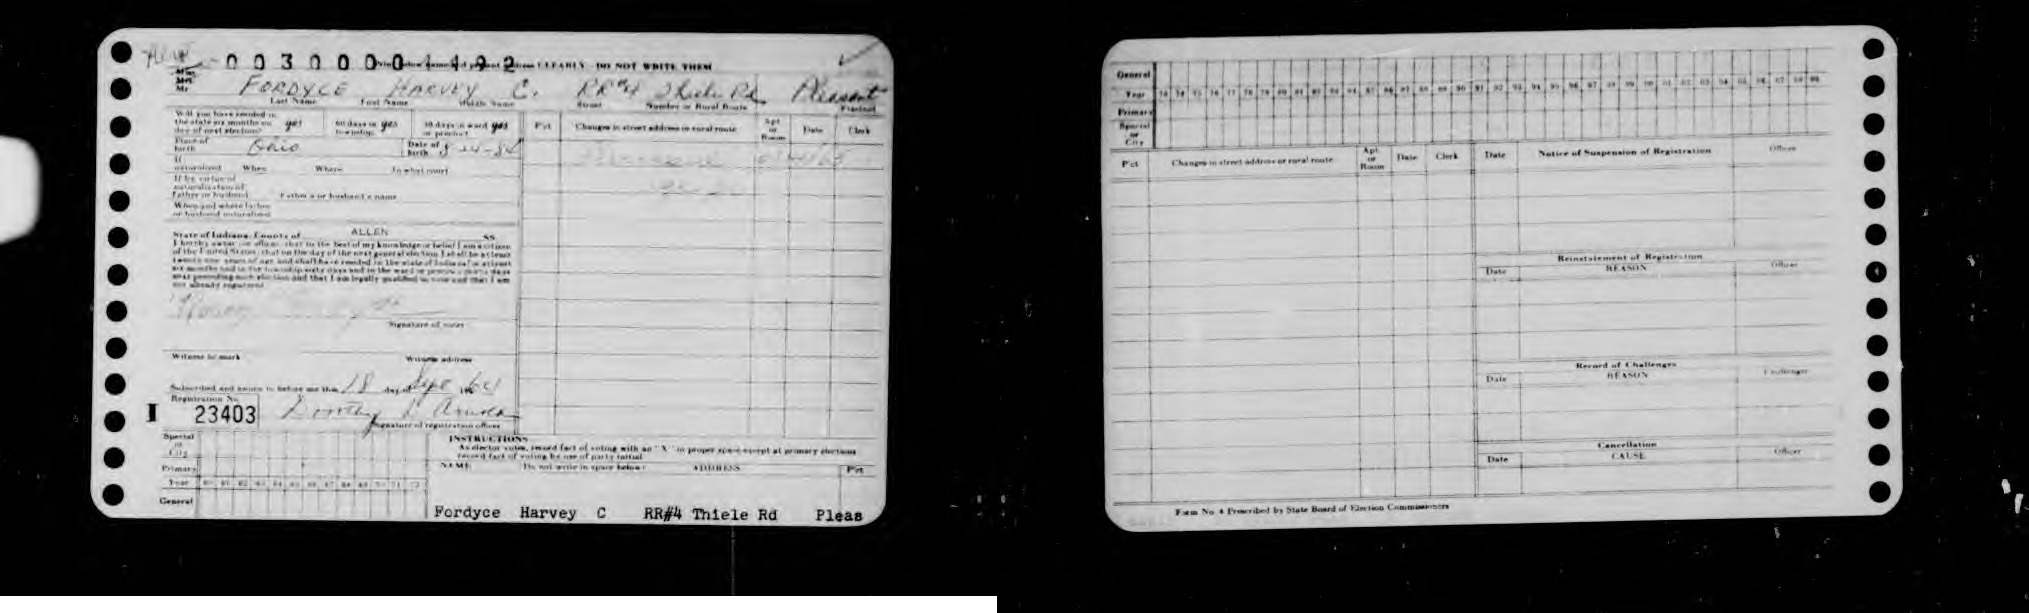 New 0030000 1492
Print below name and present address CLEARLY DO NOT WRITE THEM
Miss
Mrs
Mr FORDYCE HARVEY C. RR#4 Thiele Rd Pleasant
Last Name First Name Middle Name Street Number or Rural Route Precinct
Will you have resided in
the state six months on
day of next election? yes 60 days in township yes 30 days in ward or precinct yes
Place of birth Ohio Date of birth
If naturalized When Where In what court
If by virtue of
naturalization of
Father or husband Father's or husband's name
When and where father
or husband naturalized
State of Indiana, County of ALLEN SS
I hereby swear (or affirm) that to the best of my knowledge or belief I am a citizen
of the United States, that on the day of the next general election I shall be at least
twenty one years of age and shall have resided in the state of Indiana at least
six months and in the township sixty days and in the ward or precinct thirty days
next preceding such election and that I am legally qualified to vote and that I am
not already registered
Signature of voter
Witness to mark Witness address
Subscribed and sworn to before me this 18 day of Sept 1964
Registration No.
I 23403 Dorothy
Signature of registration officer
P'ct Changes in street address or rural route Apt or Room Date Clerk
Special
or
City
Primary
Year 60 61 62 63 64 65 66 67 68 69 70 71 72
General
INSTRUCTIONS
As elector votes, record fact of voting with an "X" in proper space except at primary elections
record fact of voting by use of party initial
NAME Do not write in space below: ADDRESS P'ct
Fordyce Harvey C RR#4 Thiele Rd Pleas
General
Year 73 74 75 76 77 78 79 80 81 82 83 84 85 86 87 88 89 90 91 92 93 94 95 96 97 98 99 00 01 02 03 04 05 06 07 08 09
Primary
Special
or
City
P'ct Changes in street address or rural route Apt or Room Date Clerk
Date Notice of Suspension of Registration Officer
Reinstatement of Registration
Date REASON Officer
Record of Challenges
Date REASON Challenger
Cancellation
Date CAUSE Officer
Form No 4 Prescribed by State Board of Election Commissioners